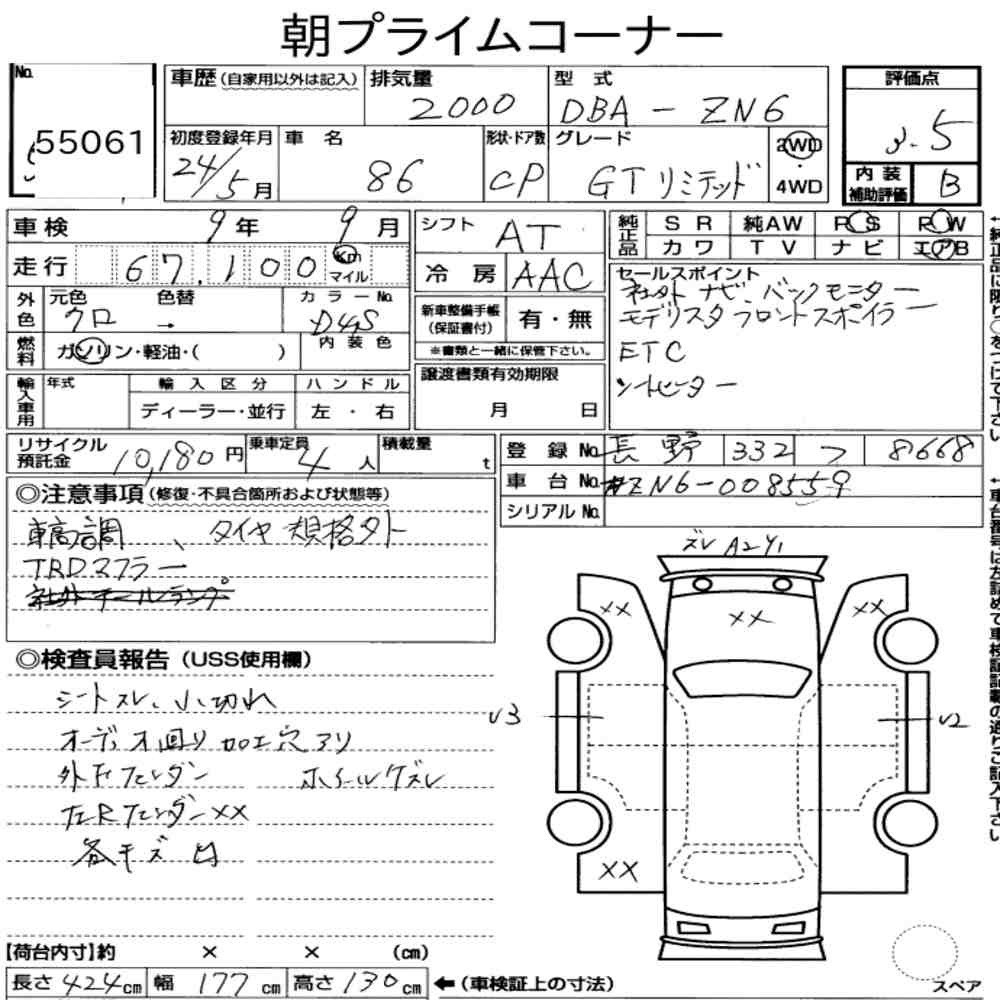 朝プライムコーナー
No. 55061
車歴 (自家用以外は記入) 排気量 2000 型式 DBA - ZN6
評価点 3.5
初度登録年月 24/5月 車名 86 形状・ドア数 CP グレード GTリミテッド 2WD・4WD
内装補助評価 B
車検 9年 9月 シフト AT
純正品 SR 純AW PS PW
カワ TV ナビ エアB
走行 67,100 Km マイル 冷房 AAC
外色 元色 クロ → 色替 カラーNo. D4S
内装色
燃料 ガソリン・軽油・( )
新車整備手帳(保証書付) 有・無
※書類と一緒に保管下さい。
セールスポイント
社外ナビ、バックモニター
モデリスタフロントスポイラー
ETC
シートヒーター
輸入車用 年式 輸入区分 ハンドル
ディーラー・並行 左・右
譲渡書類有効期限
月 日
リサイクル預託金 10,180円 乗車定員 4人 積載量 t
登録No. 長野 332 フ 8668
車台No. ZN6-008559
シリアルNo.
◎注意事項(修復・不具合箇所および状態等)
車高調、タイヤ規格外
TRDマフラー
社外テールランプ
◎検査員報告(USS使用欄)
シートスレ、小切れ
オーディオ回り加工穴アリ
ホイールケズレ
左Rフェンダーxx
各キズ凹
ズレ A2Y1
xx xx xx
U3 U2
xx
スペア
【荷台内寸】約 × × (cm)
長さ 424cm 幅 177cm 高さ 130cm ←(車検証上の寸法)